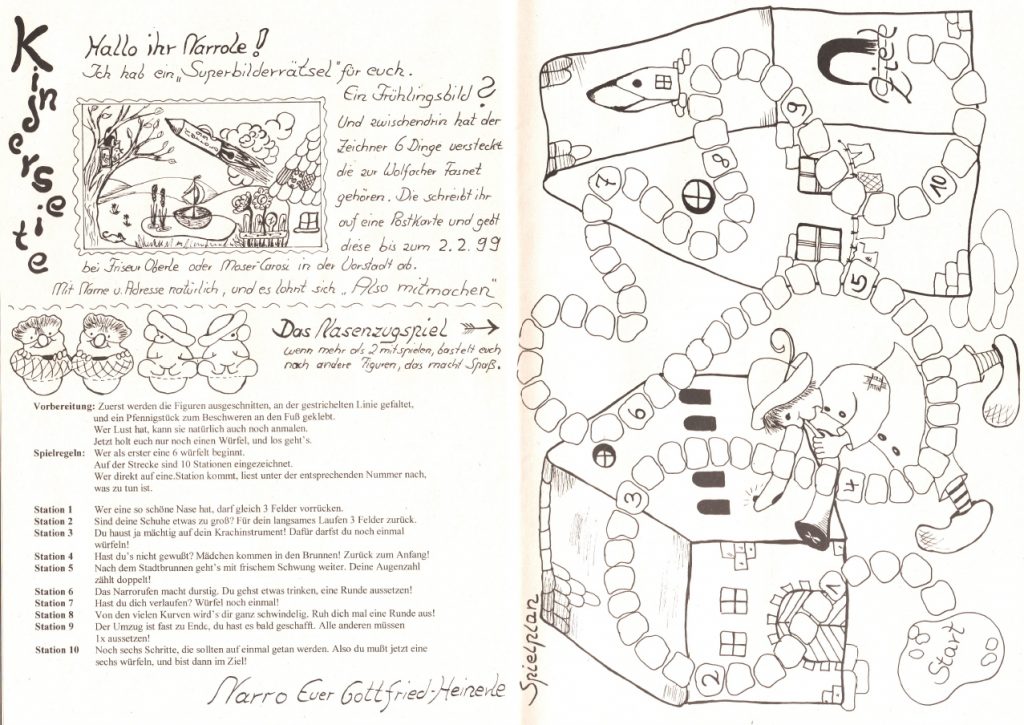 Kinderseite
Hallo ihr Narrole!
Ich hab ein „Superbilderrätsel" für euch.
Ein Frühlingsbild?
Und zwischendrin hat der
Zeichner 6 Dinge versteckt
die zur Wolfacher Fasnet
gehören. Die schreibt ihr
auf eine Postkarte und gebt
diese bis zum 2.2.99
bei Friseur Oberle oder Moser-Carosi in der Vorstadt ab.
Mit Name u. Adresse natürlich, und es lohnt sich „Also mitmachen"
Das Nasenzugspiel
wenn mehr als 2 mitspielen, bastelt euch
noch andere Figuren, das macht Spaß.
Vorbereitung: Zuerst werden die Figuren ausgeschnitten, an der gestrichelten Linie gefaltet,
und ein Pfennigstück zum Beschweren an den Fuß geklebt.
Wer Lust hat, kann sie natürlich auch noch anmalen.
Jetzt holt euch nur noch einen Würfel, und los geht's.
Spielregeln: Wer als erster eine 6 würfelt beginnt.
Auf der Strecke sind 10 Stationen eingezeichnet.
Wer direkt auf eine Station kommt, liest unter der entsprechenden Nummer nach,
was zu tun ist.
Station 1 Wer eine so schöne Nase hat, darf gleich 3 Felder vorrücken.
Station 2 Sind deine Schuhe etwas zu groß? Für dein langsames Laufen 3 Felder zurück.
Station 3 Du haust ja mächtig auf dein Krachinstrument! Dafür darfst du noch einmal
würfeln!
Station 4 Hast du's nicht gewußt? Mädchen kommen in den Brunnen! Zurück zum Anfang!
Station 5 Nach dem Stadtbrunnen geht's mit frischem Schwung weiter. Deine Augenzahl
zählt doppelt!
Station 6 Das Narrorufen macht durstig. Du gehst etwas trinken, eine Runde aussetzen!
Station 7 Hast du dich verlaufen? Würfel noch einmal!
Station 8 Von den vielen Kurven wird's dir ganz schwindelig. Ruh dich mal eine Runde aus!
Station 9 Der Umzug ist fast zu Ende, du hast es bald geschafft. Alle anderen müssen
1x aussetzen!
Station 10 Noch sechs Schritte, die sollten auf einmal getan werden. Also du mußt jetzt eine
sechs würfeln, und bist dann im Ziel!
Narro Euer Gottfried-Heinerle
Spielplan
Ziel
9
8
7
10
5
6
3
4
1
2
Start